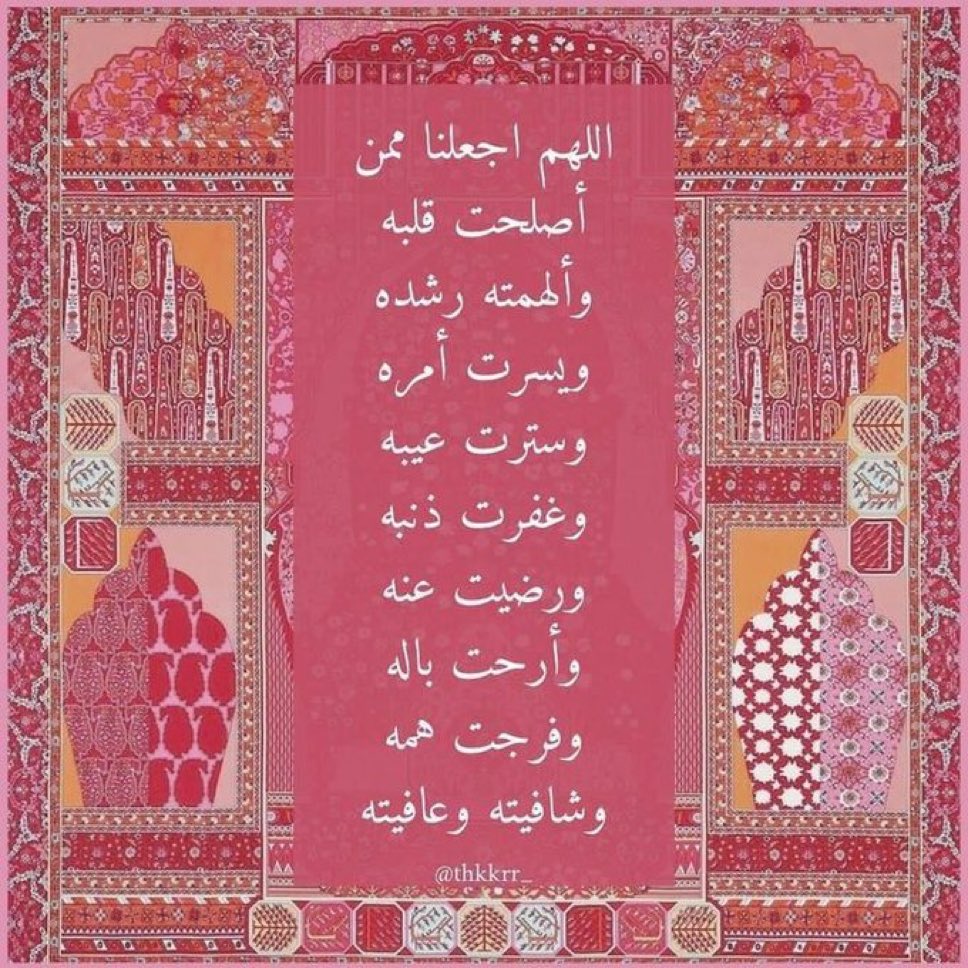 اللهم اجعلنا ممن
أصلحت قلبه
وألهمته رشده
ويسرت أمره
وسترت عيبه
وغفرت ذنبه
ورضيت عنه
وأرحت باله
وفرجت همه
وشافيته وعافيته
@thkkrr_